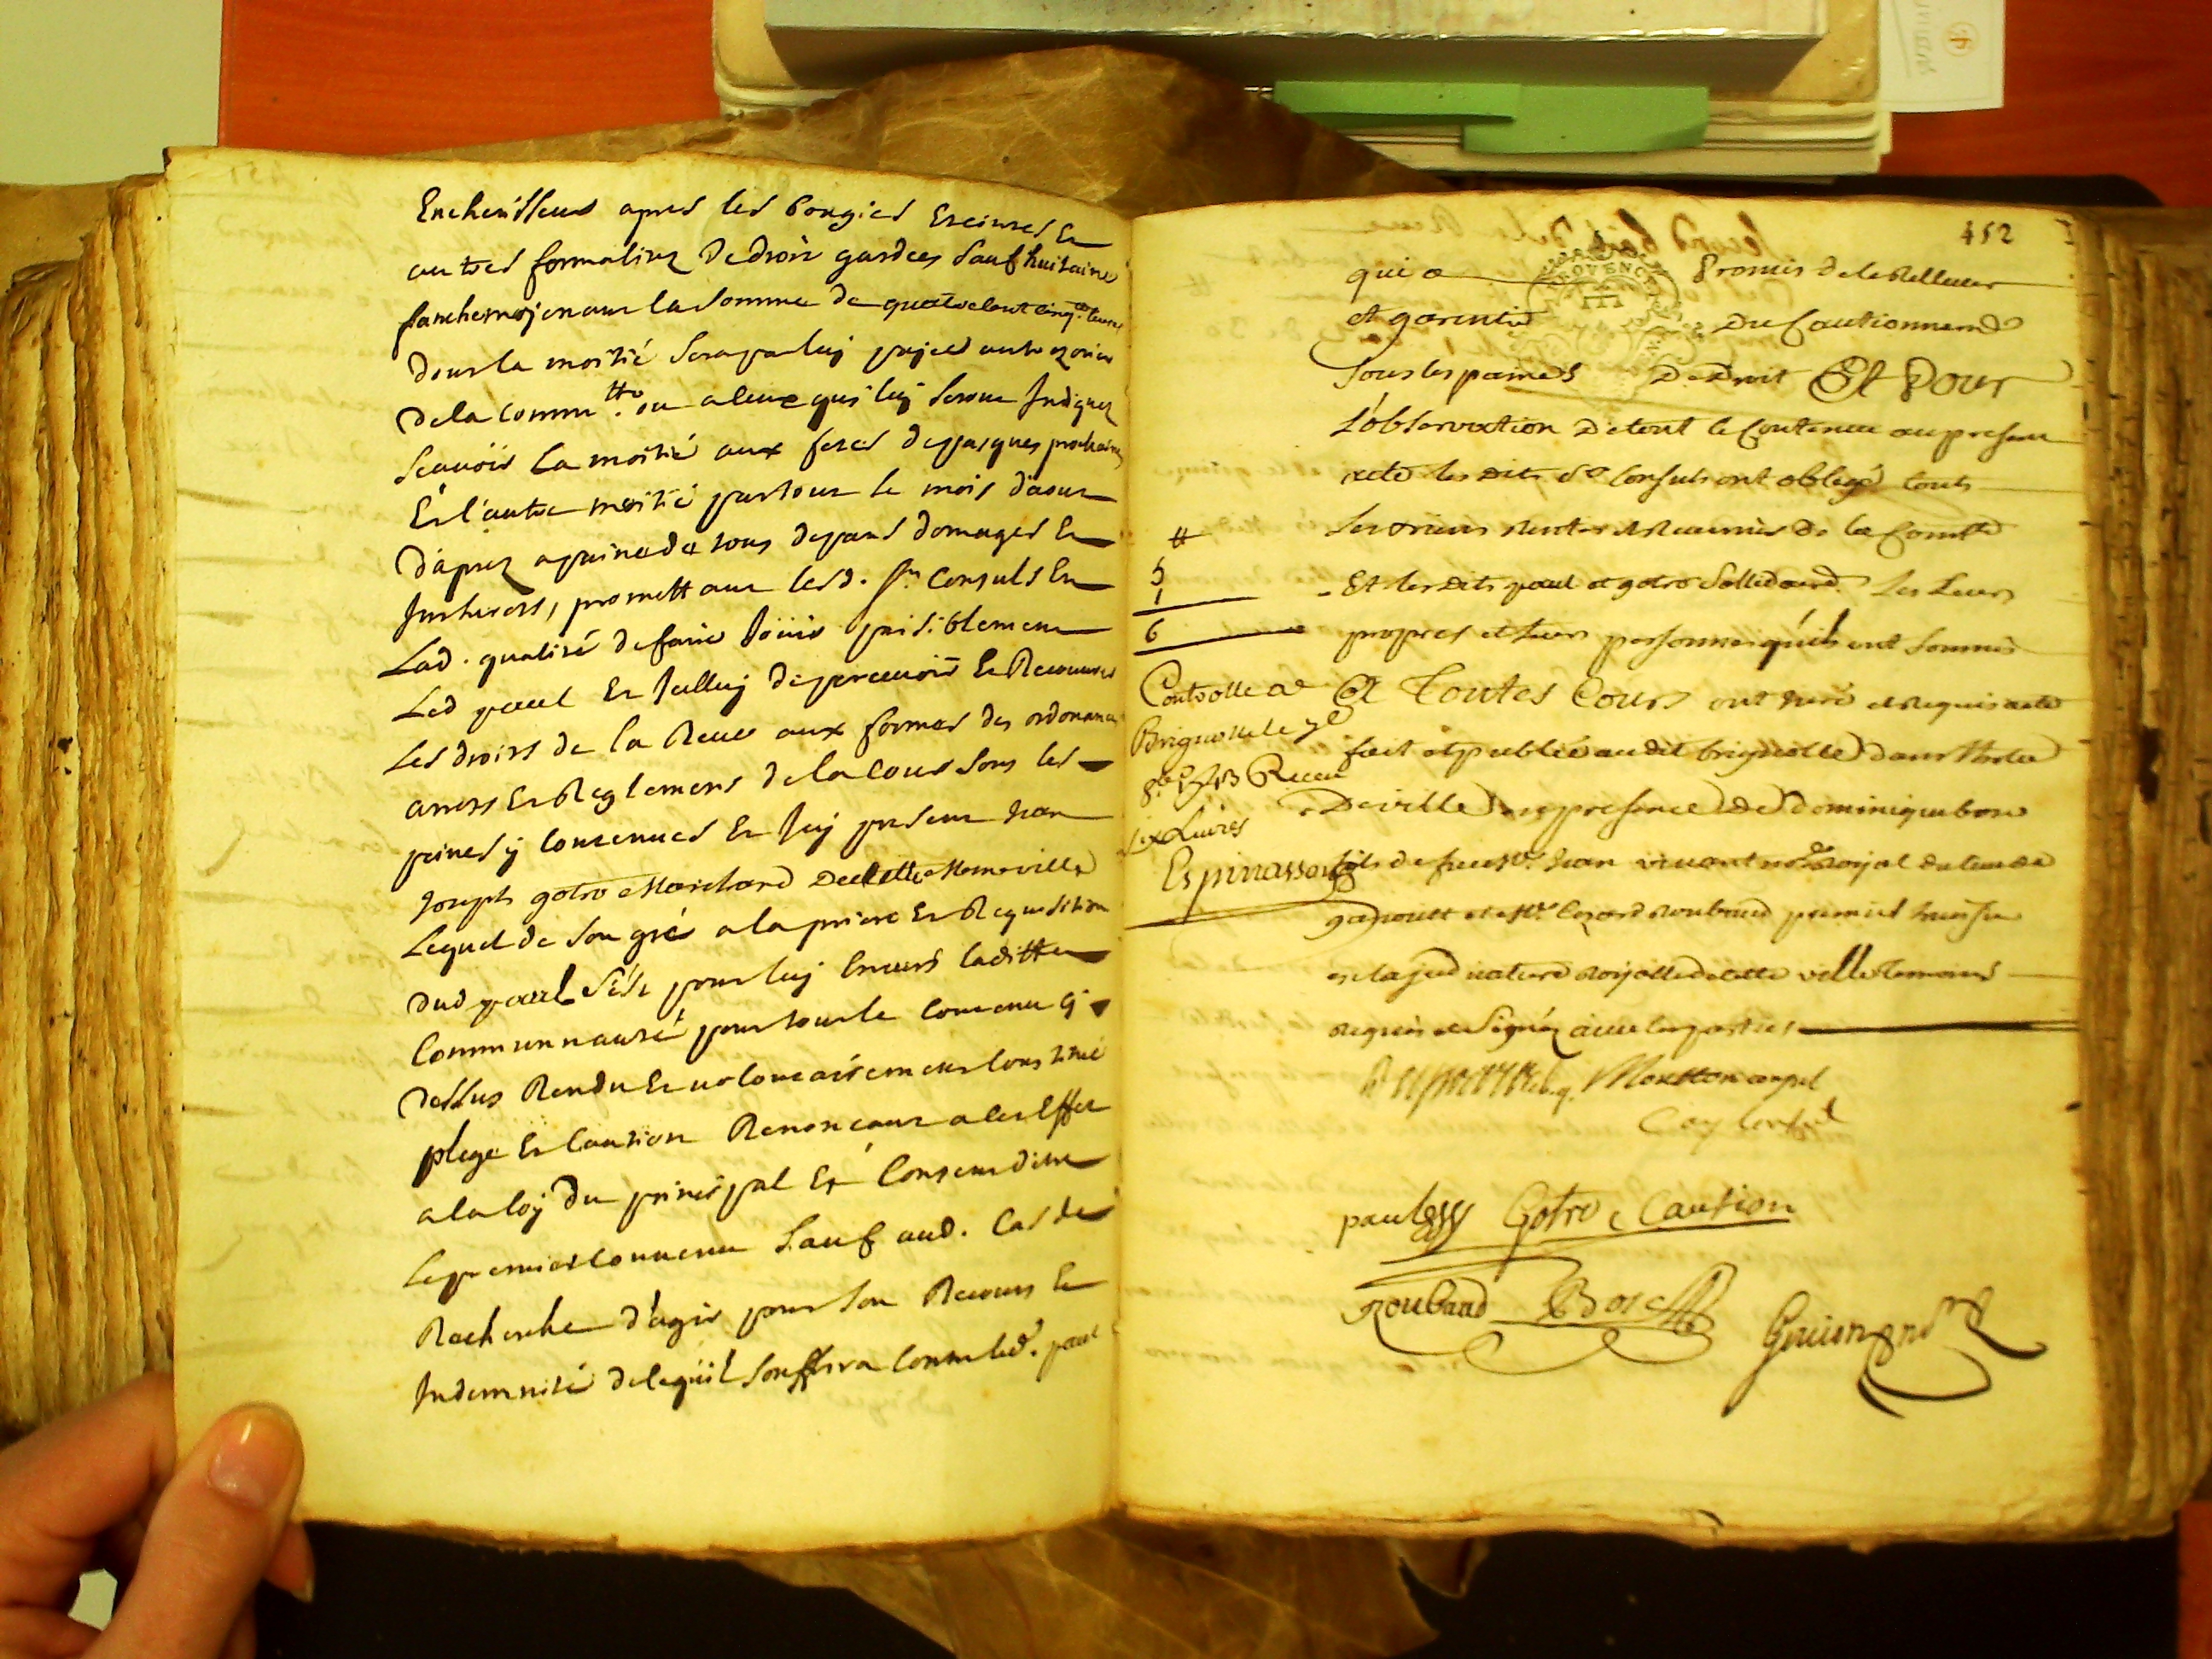 Encherisseur apres les bougies Esteintes Et
autres formalités de droit gardées sauf huitaine
moienant la somme de quatre cent cinq.te livres
dont la moitié sera par luy payée au trezorier
de la comm.tté ou a ceux qui luy seront Indiquez
scauoir la moitié aux festes de pasques prochaines
Et l'autre moitié par tout le mois d'aout
d'aprez a paine de tous depans domages Et
Interests, promettant lesd. srs Consuls En
Lad. qualité de faire Jouir paisiblement
Led paul Et Icelluy de perceuoir Et Recouurer
Les droits de la Reue aux formes des ordonances
arrets Et Reglemens de la Cour sous les
peines y Contenues Et Icy present
Joseph gotro Marchand de cette ville
Lequel de son gré a la priere Et Requisition
dud paul s'est pour luy Enuers laditte
Communauté pour tout le Contenu cy
dessus Rendu Et volontairement Constitué
plege Et Caution Renonceant a cet Effet
a la loy du principal Et Consent d'etre
Le premier Conuenu sauf aud. Cas de
Recherche d'agir pour son Recours Et
Indemnité de ce qu'il souffrira Contre led. paul
452
PROVENCE
qui a promis de le Relleuer
et garentir du Cautionnement
Sous les peines De Droit Et Pour
L'observation De tout le Contenu au present
acte les Dits srs Consuls ont obligé touts
Les biens rentes et Reuenus De la Com.tté
Et les Dits paul et gotro sollidairem.t Les Leurs
propres et leurs personnes qu'ils ont soumis
A Toutes Cours ont Juré et Requis acte
fait et publié au dit brignolle dans l'hotel
De ville en presence De dominique bosc
fils de feu M.e Jean viuant no.re Royal du lieu de
et M.e Roubaud premier huissier
en la judicature Royalle de cette ville temoins
Requis et Signéz auec les parties
tt
5
1
6
Controllé a
Brignolle le 7e
8bre Receu
six Liures
Espinassou
Moutton consul
Consul
paul Gotro Caution
Roubaud Bosc